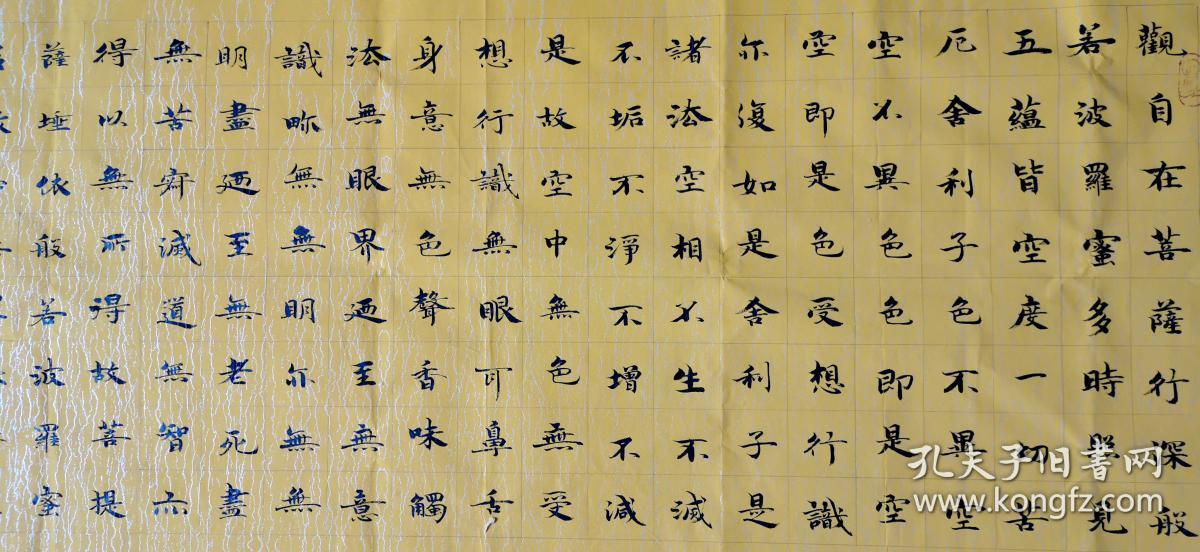 觀自在菩薩行深般
若波羅蜜多時照見
五蘊皆空度一切苦
厄舍利子色不異空
空不異色色即是空
空即是色受想行識
亦復如是舍利子是
諸法空相不生不滅
不垢不淨不增不減
是故空中無色無受
想行識無眼耳鼻舌
身意無色聲香味觸
法無眼界迺至無意
識畍無無明亦無無
明盡迺至無老死盡
無苦滅道無智亦
得以無所得故菩提
薩埵依般若波羅蜜
孔夫子旧书网
www.kongfz.com